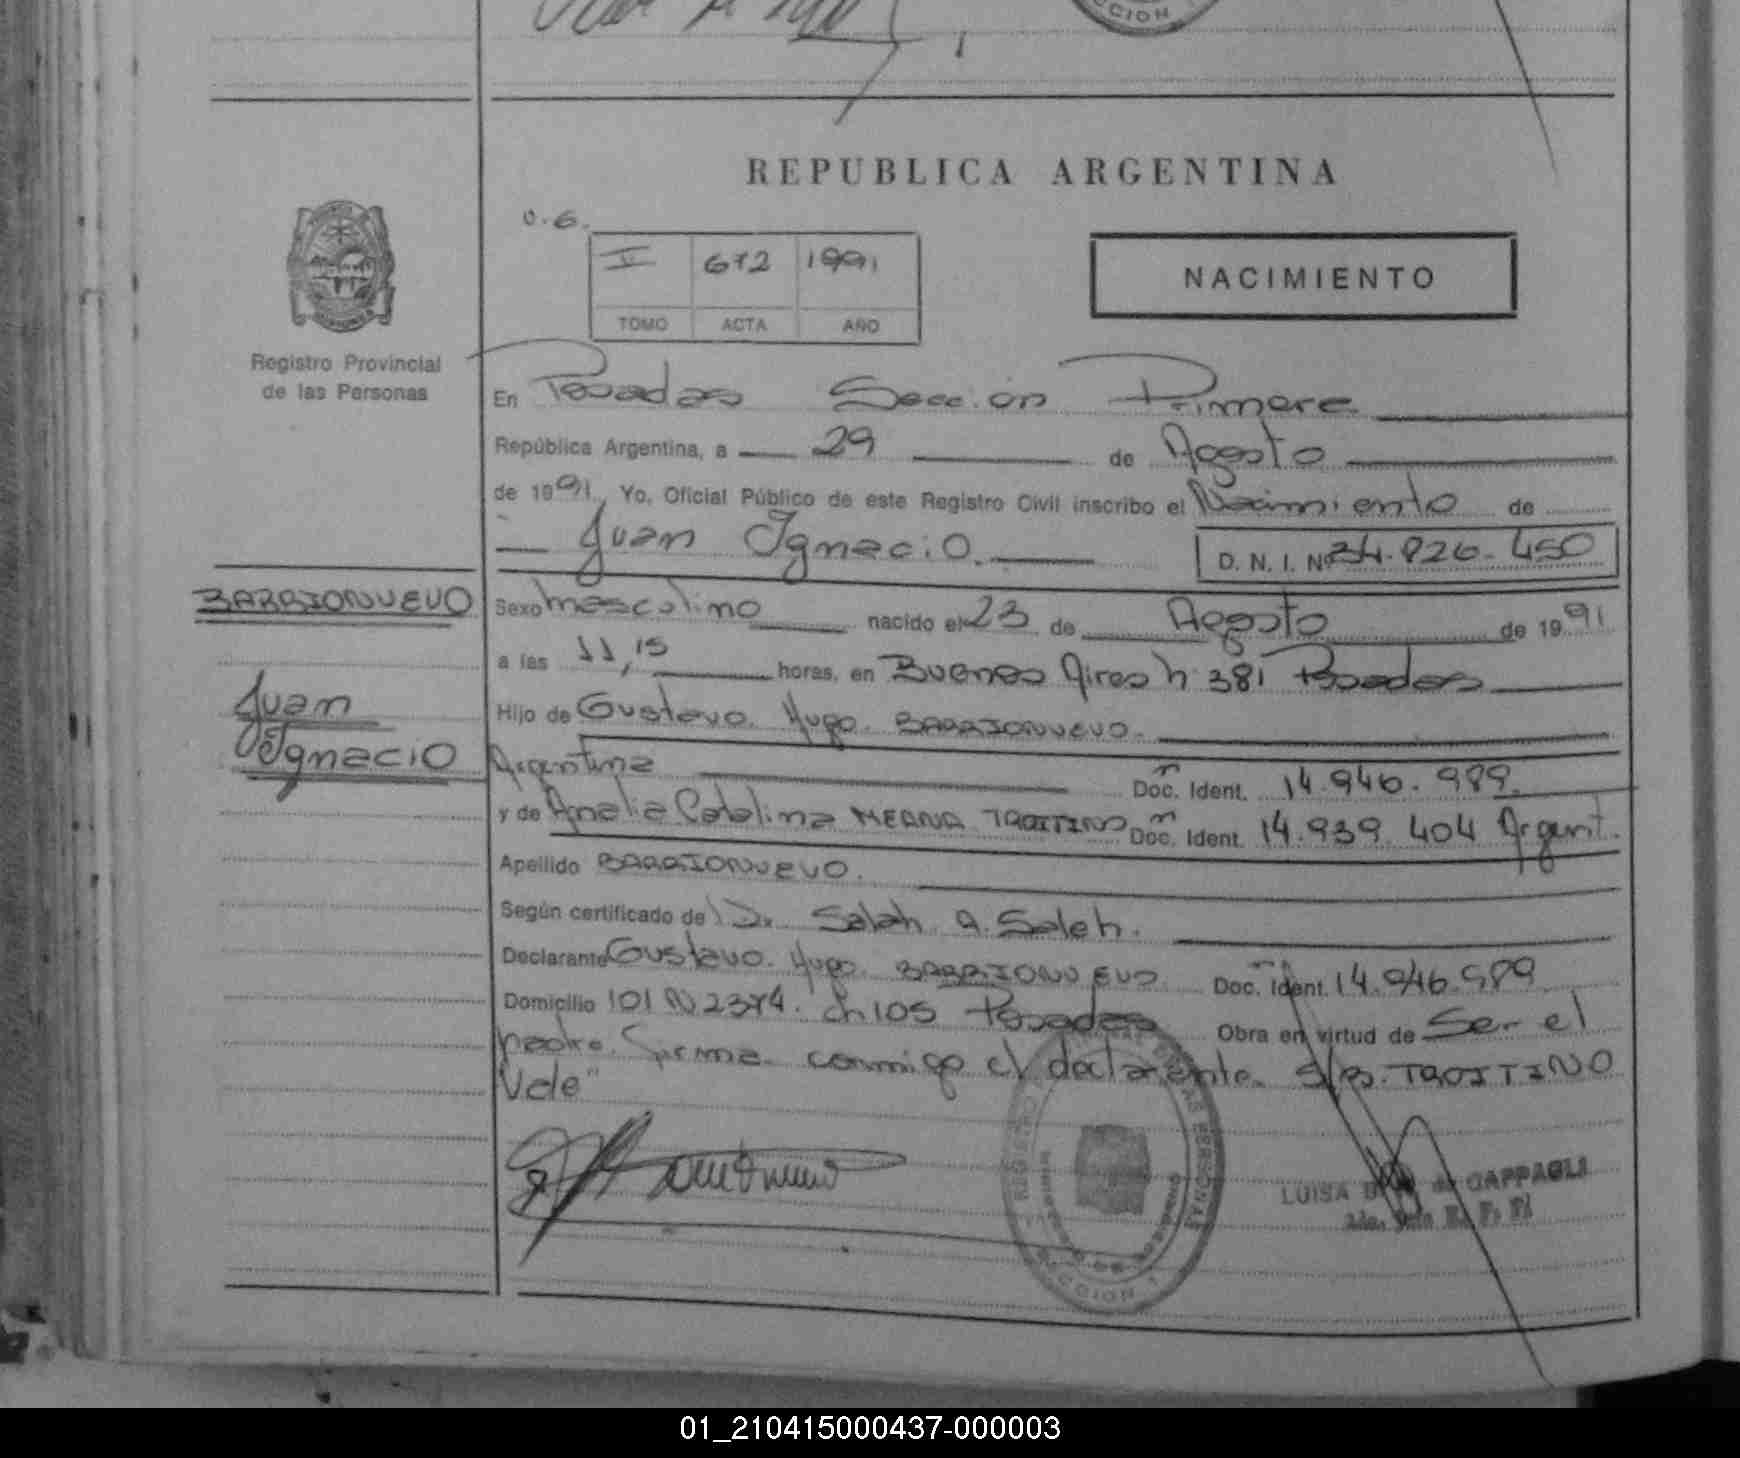 CCION
REPUBLICA ARGENTINA
0.6.
II 672 1991
TOMO ACTA AÑO
NACIMIENTO
Registro Provincial
de las Personas
En Posadas Sección Primera
República Argentina, a 29 de Agosto
de 1991, Yo, Oficial Público de este Registro Civil inscribo el Nacimiento de
Juan Ignacio. D. N. I. Nº 34.826.450
BARRIONUEVO
Sexo masculino nacido el 23 de Agosto de 1991
a las 11,15 horas, en Buenos Aires n 381 Posadas
Juan
Ignacio
Hijo de Gustavo Hugo BARRIONUEVO.
Argentina Doc. Ident. 14.946.989.
y de Analia Catalina MERNA TROITINO Doc. Ident. 14.939.404 Argent.
Apellido BARRIONUEVO.
Según certificado de Dr. Saleh A. Saleh.
Declarante Gustavo Hugo BARRIONUEVO Doc. Ident. 14.946.989
Domicilio 101 N 2374. ch 105 Posadas Obra en virtud de Ser el
padre. Firma conmigo el declarante. S/R. TROITINO
Vale"
REGISTRO PERSONAS
CCION 1
LUISA de GAPPAGLI
01_210415000437-000003